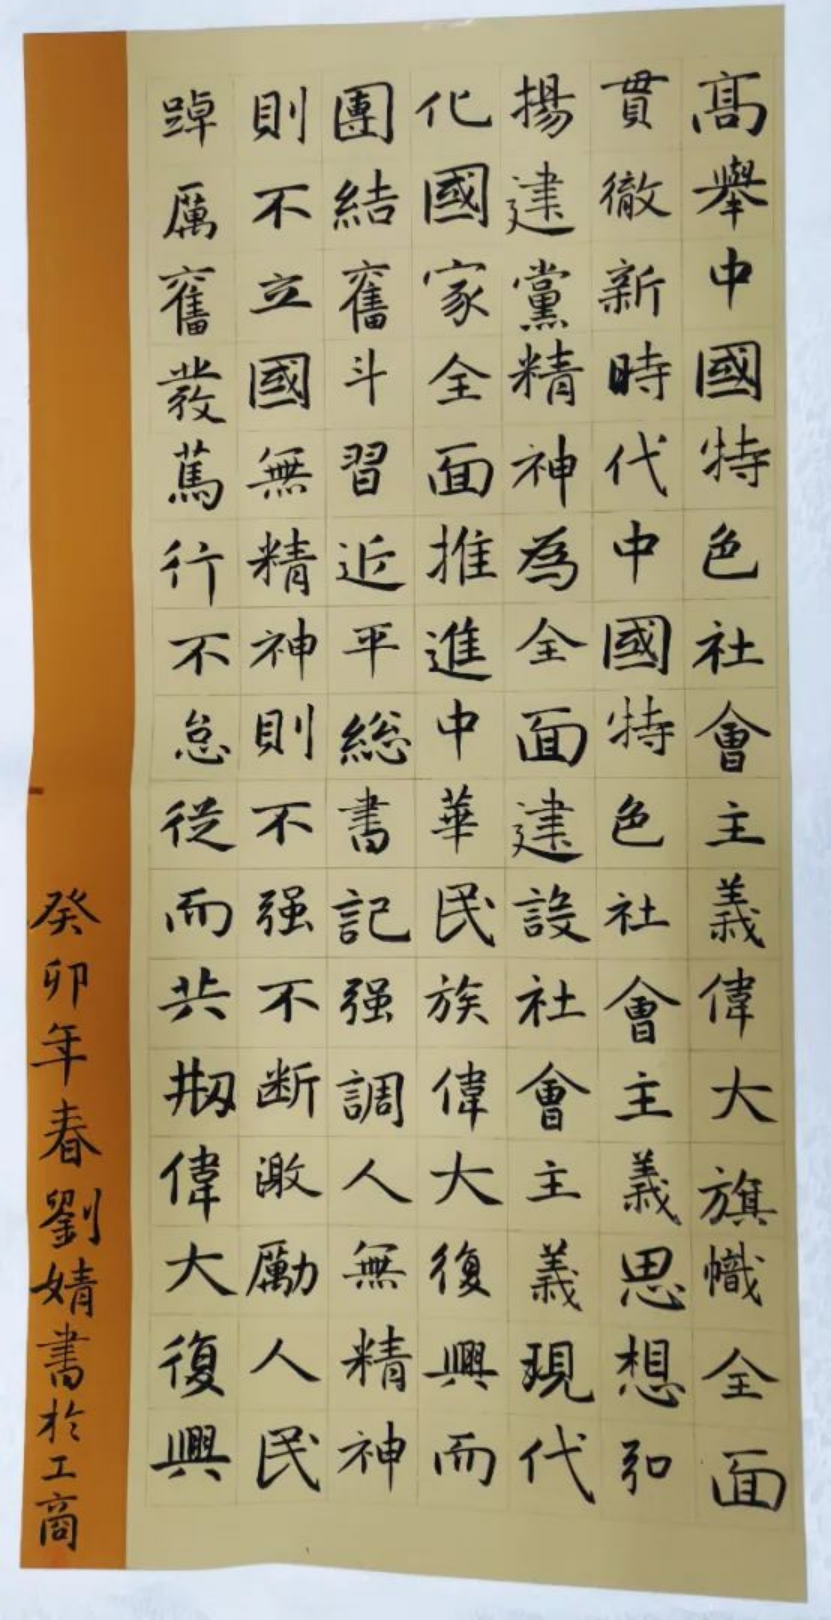 高舉中國特色社會主義偉大旗幟全面
貫徹新時代中國特色社會主義思想弘
揚建黨精神為全面建設社會主義現代
化國家全面推進中華民族偉大復興而
團結奮斗習近平総書記强調人無精神
則不立國無精神則不强不断激勵人民
踔厲奮發篤行不怠從而共刱偉大復興
癸卯年春劉婧書於工商